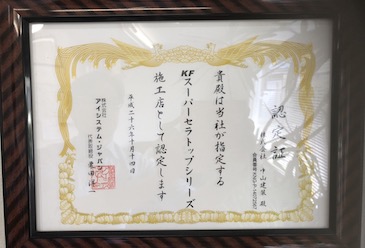 認定証
株式会社 中山建装 殿
貴殿は当社が指定する
KFスーパーセラトップシリーズ
施工店として認定します
平成二十六年十月十四日
株式会社
アイシステム・ジャパン
代表取締役